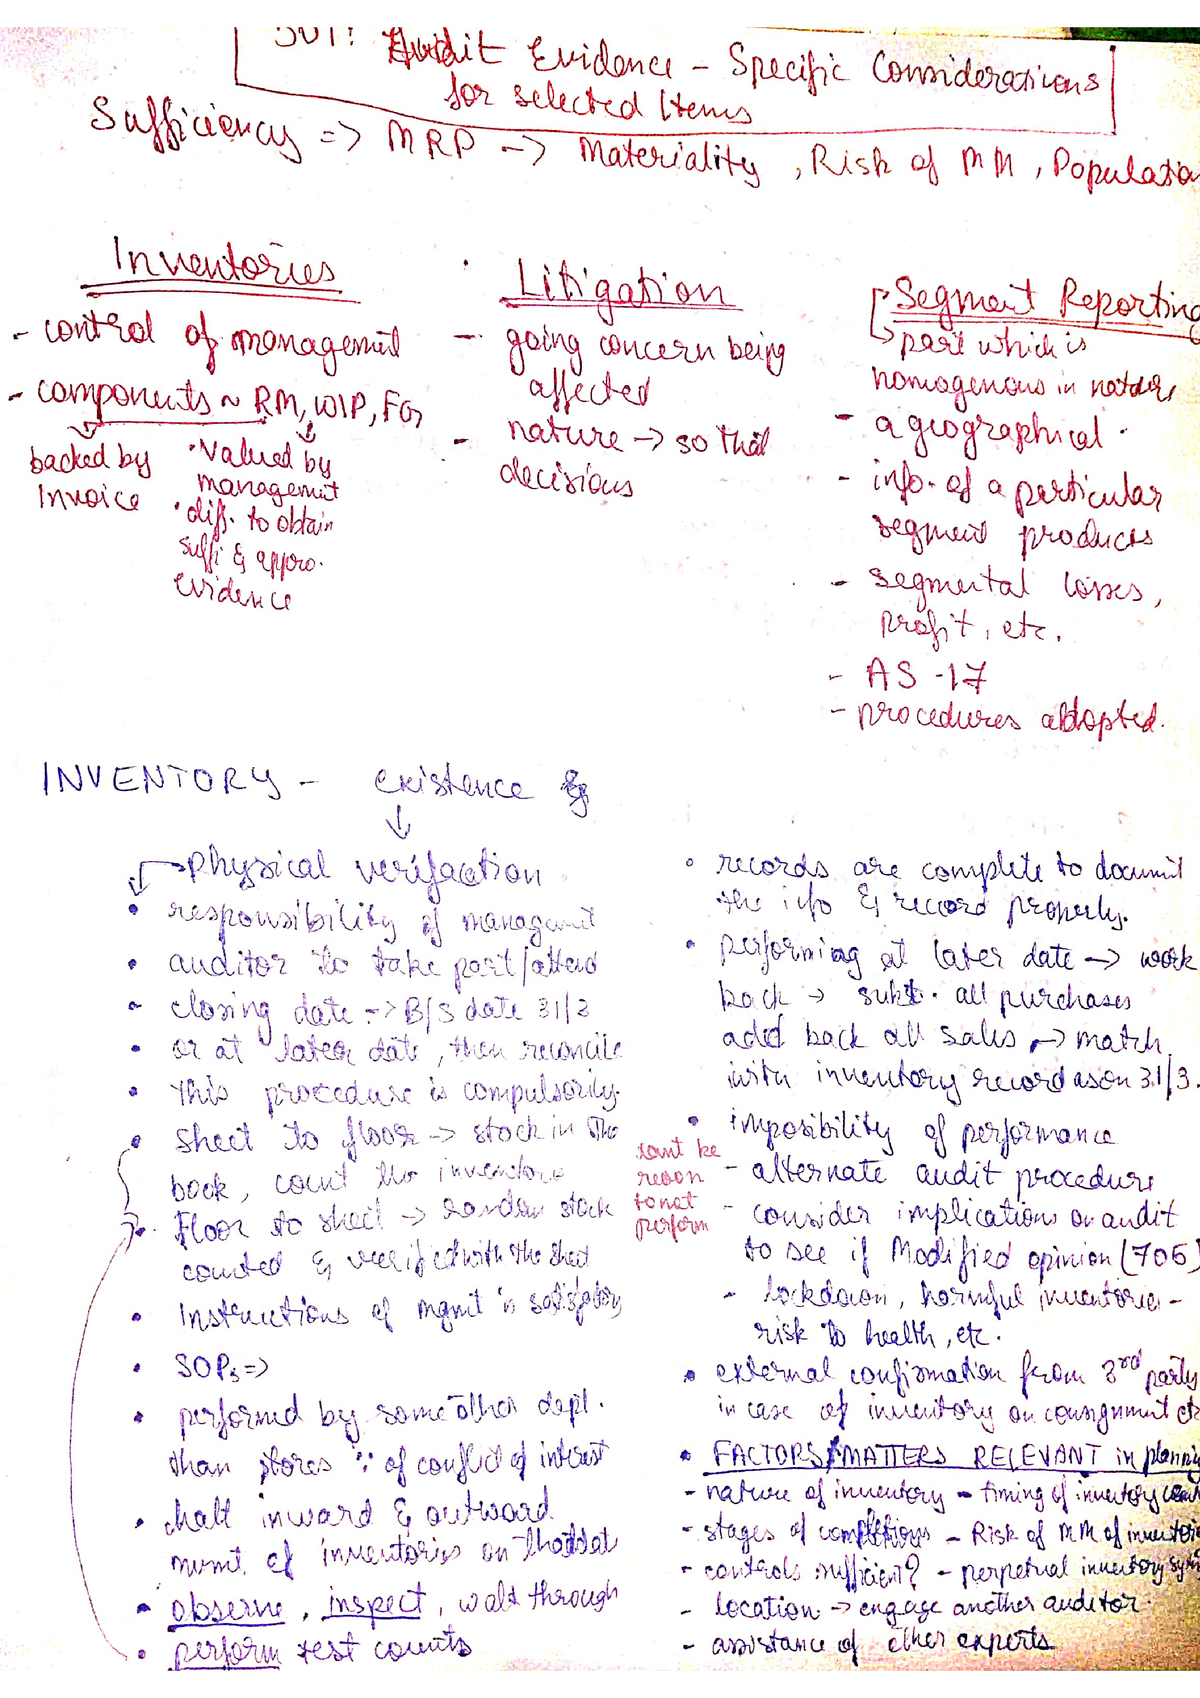 501: Audit Evidence - Specific Considerations
for selected Items
Sufficiency => MRP -> Materiality, Risk of MM, Population
Inventories
- control of management
- components ~ RM, WIP, FG
backed by
Invoice
• Valued by
management
• diff. to obtain
suffi & appro.
evidence
Litigation
- going concern being
affected
- nature -> so that
decisions
Segment Reporting
part which is
homogenous in nature
- a geographical.
- info. of a particular
segment products
- segmental losses,
profit, etc.
- AS-17
- procedures adopted.
INVENTORY - existence
Physical verifaction
• responsibility of managemt
• auditor to take part/attend
• closing date -> B/S date 31/3
• or at later date, then reconcile
• this procedure is compulsorily.
• sheet to floor -> stock in the
book, count the inventory
• Floor to sheet -> random stock
counted & verified with the sheet
• Instructions of mgmt is satisfatory
• SOPs =>
• performed by some other dept.
than stores ∵ of conflict of interest
• halt inward & outward
mvmt. of inventories on that date
• observe, inspect, walk through
• perform test counts
• records are complete to documt
the info & record properly.
• performing at later date -> work
back -> subt. all purchases
add back all sales -> match
with inventory record as on 31/3.
• imposibility of performance
cant be
reason
to not
perform
- alternate audit procedure
- consider implications on audit
to see if Modified opinion (705)
- lockdown, harmful inventories -
risk to health, etc.
• external confirmation from 3rd party
in case of inventory on consignment etc
• FACTORS/MATTERS RELEVANT in planning
- nature of inventory - timing of inventory count
- stages of completions - Risk of MM of inventories
- controls sufficient? - perpetual inventory sys
- location -> engage another auditor.
- assistance of other experts